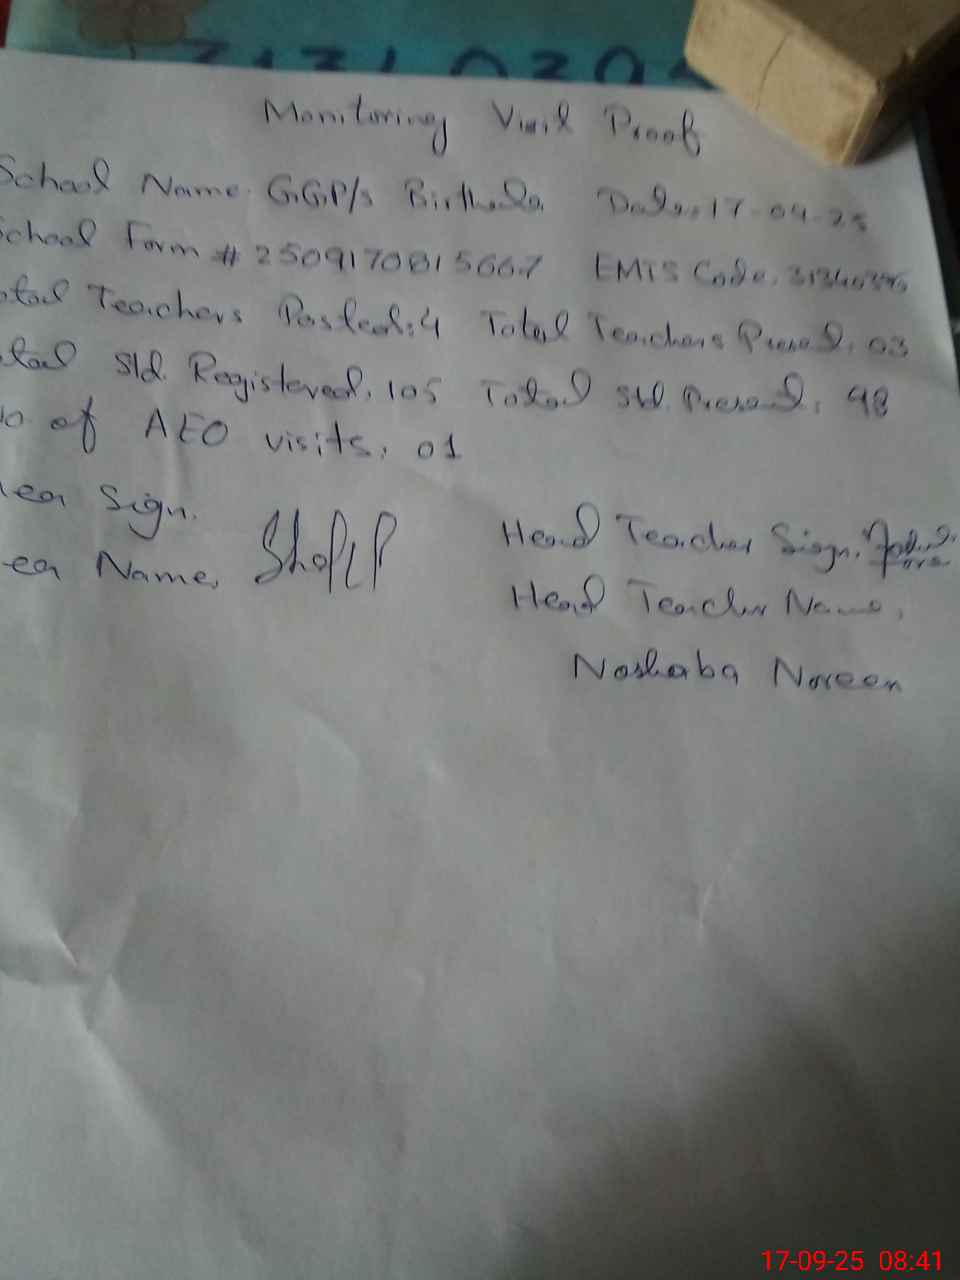 Monitoring Visit Proof
School Name: G.G.P/s Date: 17-09-25
School Form # 2509170815667 EMIS Code:
otal Teachers Posted: 4 Total Teachers Presed: 03
otal Std. Registered: 105 Total Std. Presend: 98
No. of AEO visits: 01
Mea Sign. Head Teacher Sign.
ea Name, Head Teacher Name,
Noshaba Noreen
17-09-25 08:41